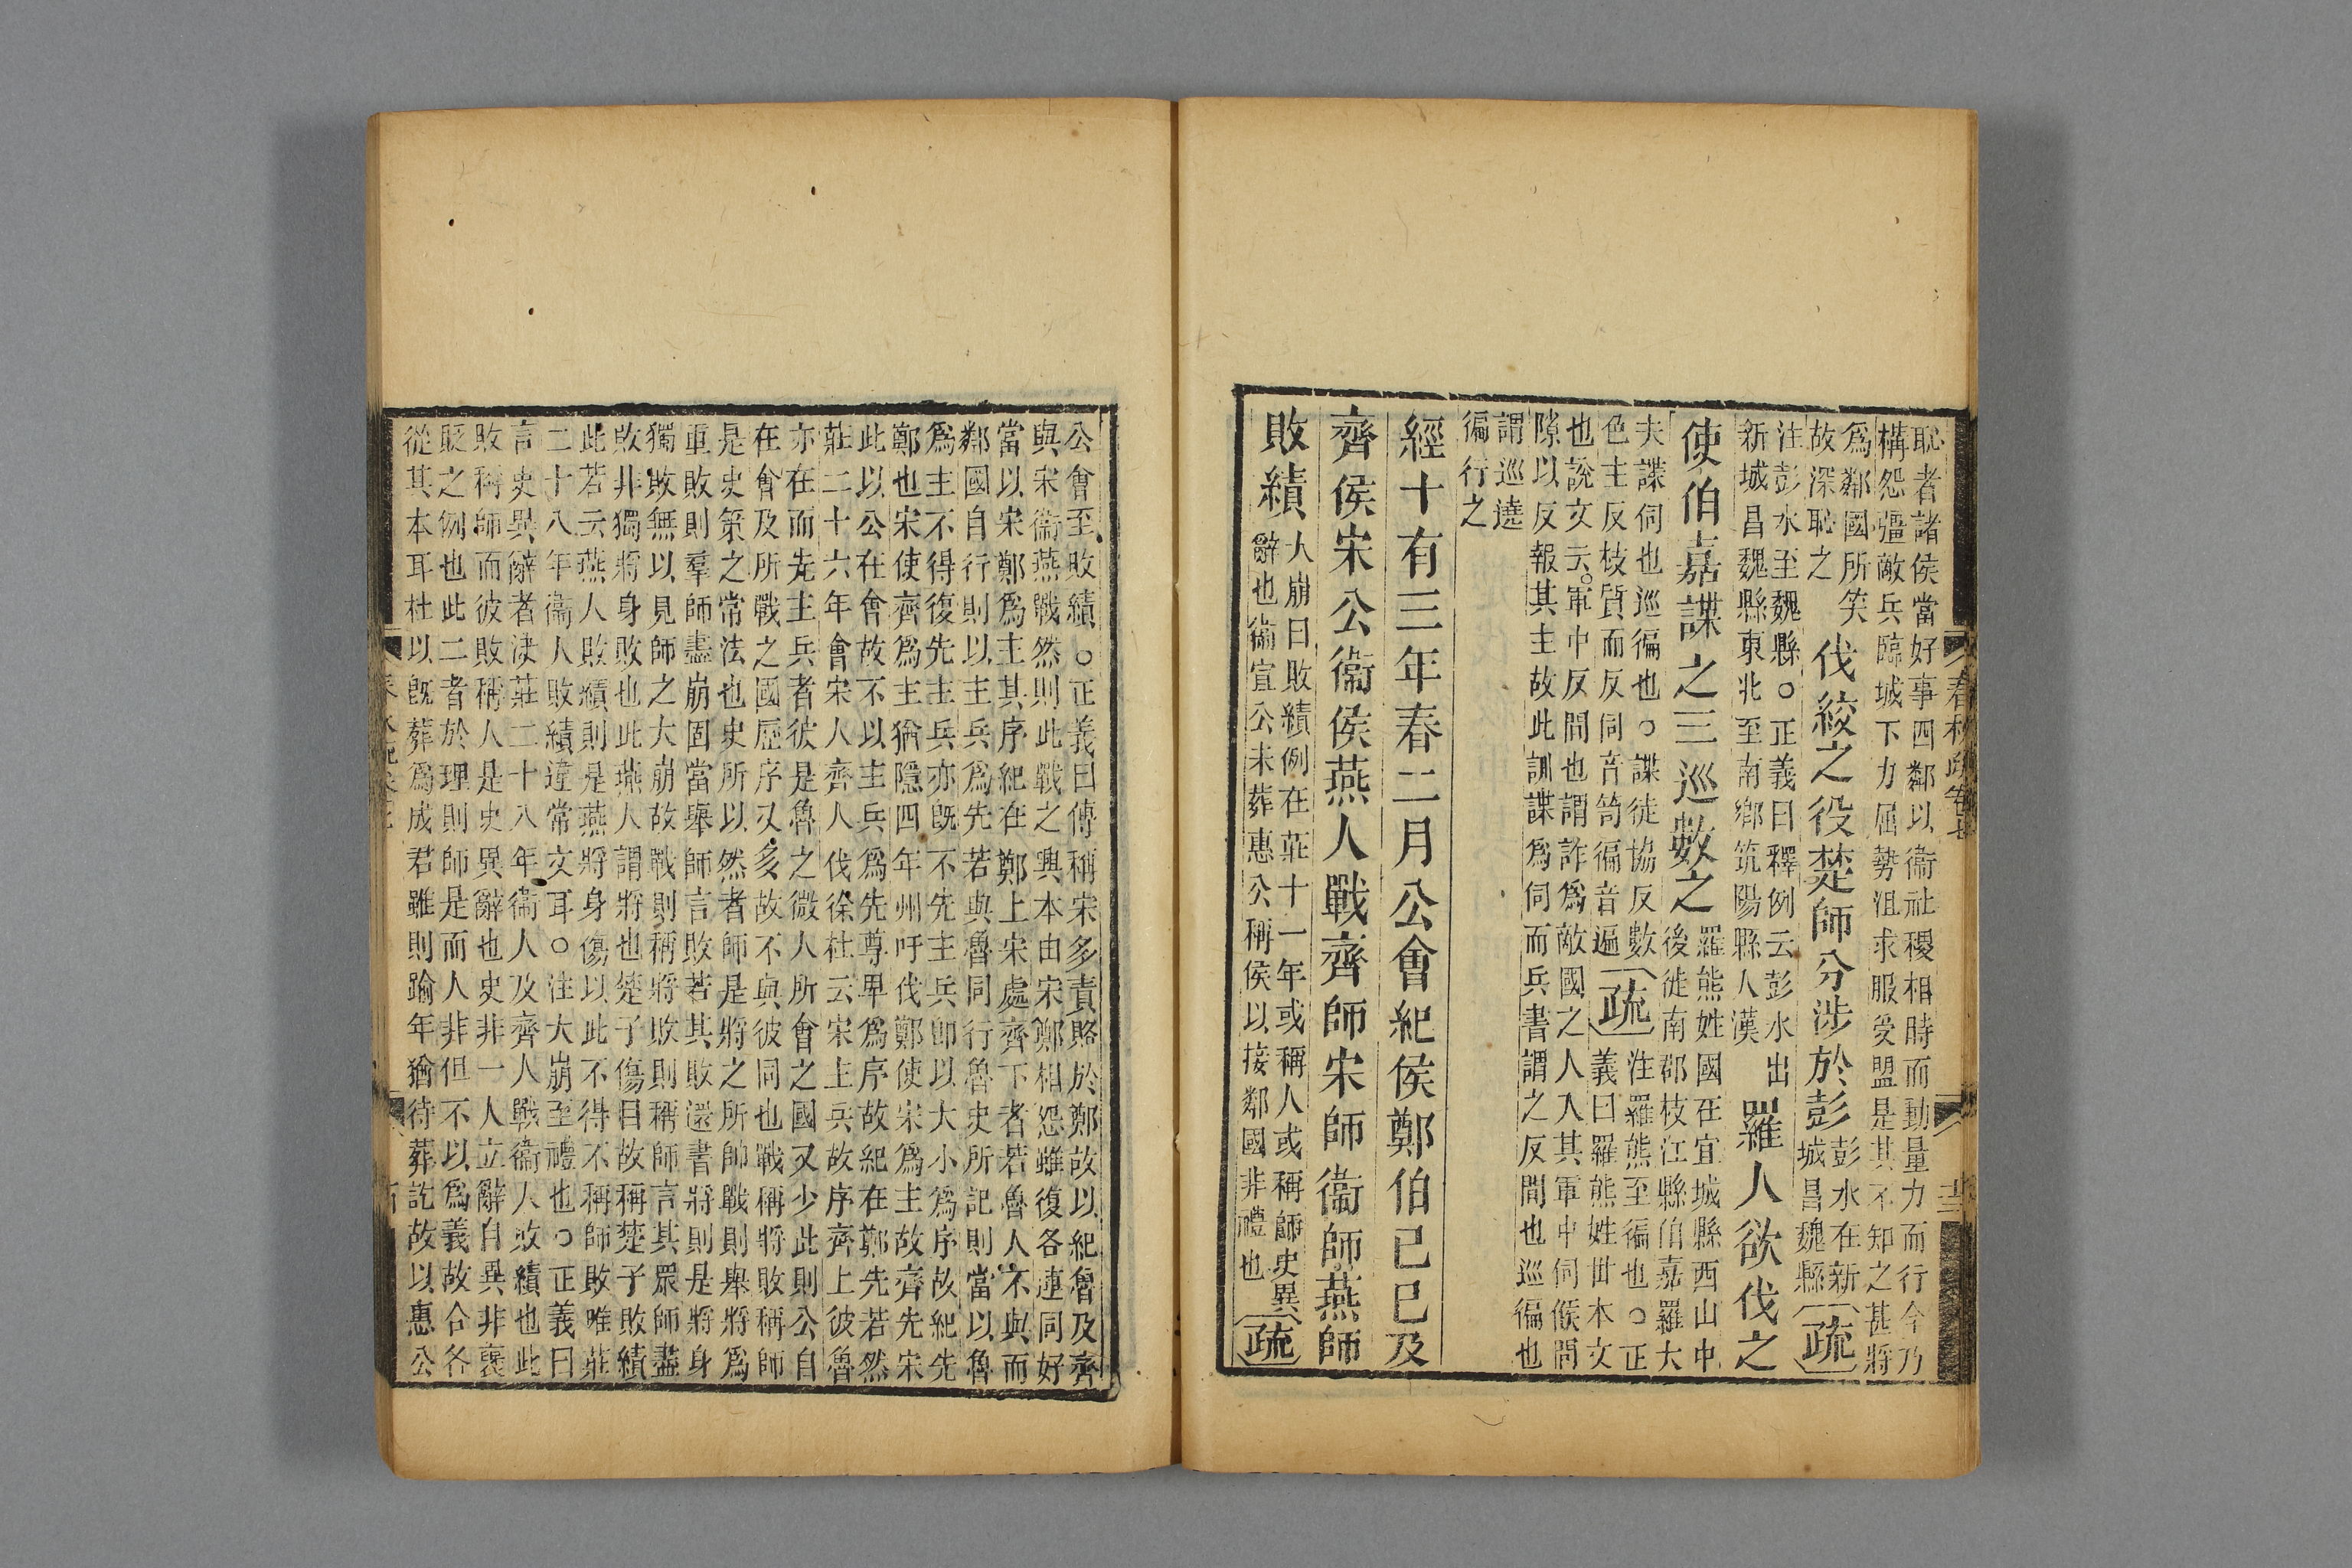 恥者諸侯當好事四鄰以衞社稷相時而動量力而行今乃
構怨彊敵兵臨城下力屈勢沮求服受盟是其不知之甚將
爲鄰國所笑
故深恥之
伐絞之役楚師分涉於彭
彭水在新
城昌魏縣
疏
注彭水至魏縣○正義曰釋例云彭水出
新城昌魏縣東北至南鄉筑陽縣入漢
羅人欲伐之
使伯嘉諜之三巡數之
羅熊姓國在宜城縣西山中
後徙南郡枝江縣伯嘉羅大
夫諜伺也巡徧也○諜徒協反數
色主反枝質而反伺音笥徧音遍
疏
注羅熊至徧也○正
義曰羅熊姓世本文
也說文云軍中反間也謂詐爲敵國之人入其軍中伺候間
隙以反報其主故此訓諜爲伺而兵書謂之反間也巡徧也
謂巡遶
徧行之
經十有三年春二月公會紀侯鄭伯己巳及
齊侯宋公衞侯燕人戰齊師宋師衞師燕師
敗績
大崩曰敗績例在莊十一年或稱人或稱師史異
辭也衞宣公未葬惠公稱侯以接鄰國非禮也
疏
公會至敗績○正義曰傳稱宋多責賂於鄭故以紀魯及齊
與宋衞燕戰然則此戰之興本由宋鄭相怨雖復各連同好
當以宋鄭爲主其序紀在鄭上宋處齊下者若魯人不與而
鄰國自行則以主兵爲先若與魯同行魯史所記則當以魯
爲主不得復先主兵亦既不先主兵卽以大小爲序故紀先
鄭也宋使齊爲主猶隱四年州吁伐鄭使宋爲主故齊先宋
此以公在會故不以主兵爲先尊卑爲序故紀在鄭先若然
莊二十六年會宋人齊人伐徐杜云宋主兵故序齊上彼魯
亦在而先主兵者彼是魯之微人所會之國又少此則公自
在會及所戰之國歷序又多故不與彼同也戰稱將敗稱師
是史策之常法也史所以然者師是將之所帥戰則舉將爲
重敗則羣師盡崩固當舉師言敗若其敗還書將則是將身
獨敗無以見師之大崩故戰則稱將敗則稱師言其眾師盡
敗非獨將身敗也此燕人謂將也楚子傷目故稱楚子敗績
此若云燕人敗績則是燕將身傷以此不得不稱師敗唯莊
二十八年衞人敗績違常文耳○注大崩至禮也○正義曰
言史異辭者決莊二十八年衞人及齊人戰衞人敗績也此
敗稱師而彼敗稱人是史異辭也史非一人立辭自異非褒
貶之例也此二者於理則師是而人非但不以爲義故合各
從其本耳杜以既葬爲成君雖則踰年猶待葬訖故以惠公